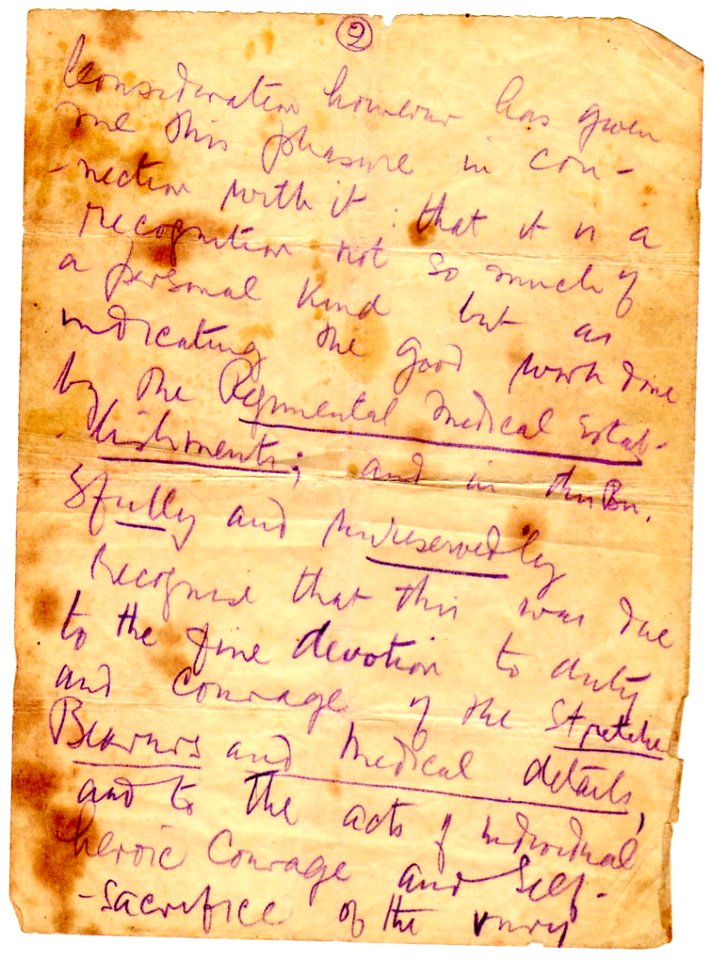 2
Consideration however has given
me this pleasure in con-
-nection with it: that it is a
recognition not so much of
a personal kind but as
indicating the good work done
by the Regimental Medical Estab-
-lishments; and in this Bn.
I fully and unreservedly
recognise that this was due
to the fine devotion to duty
and courage of the Stretcher
Bearers and Medical details,
and to the acts of individual
heroic Courage and Self-
-sacrifice of the